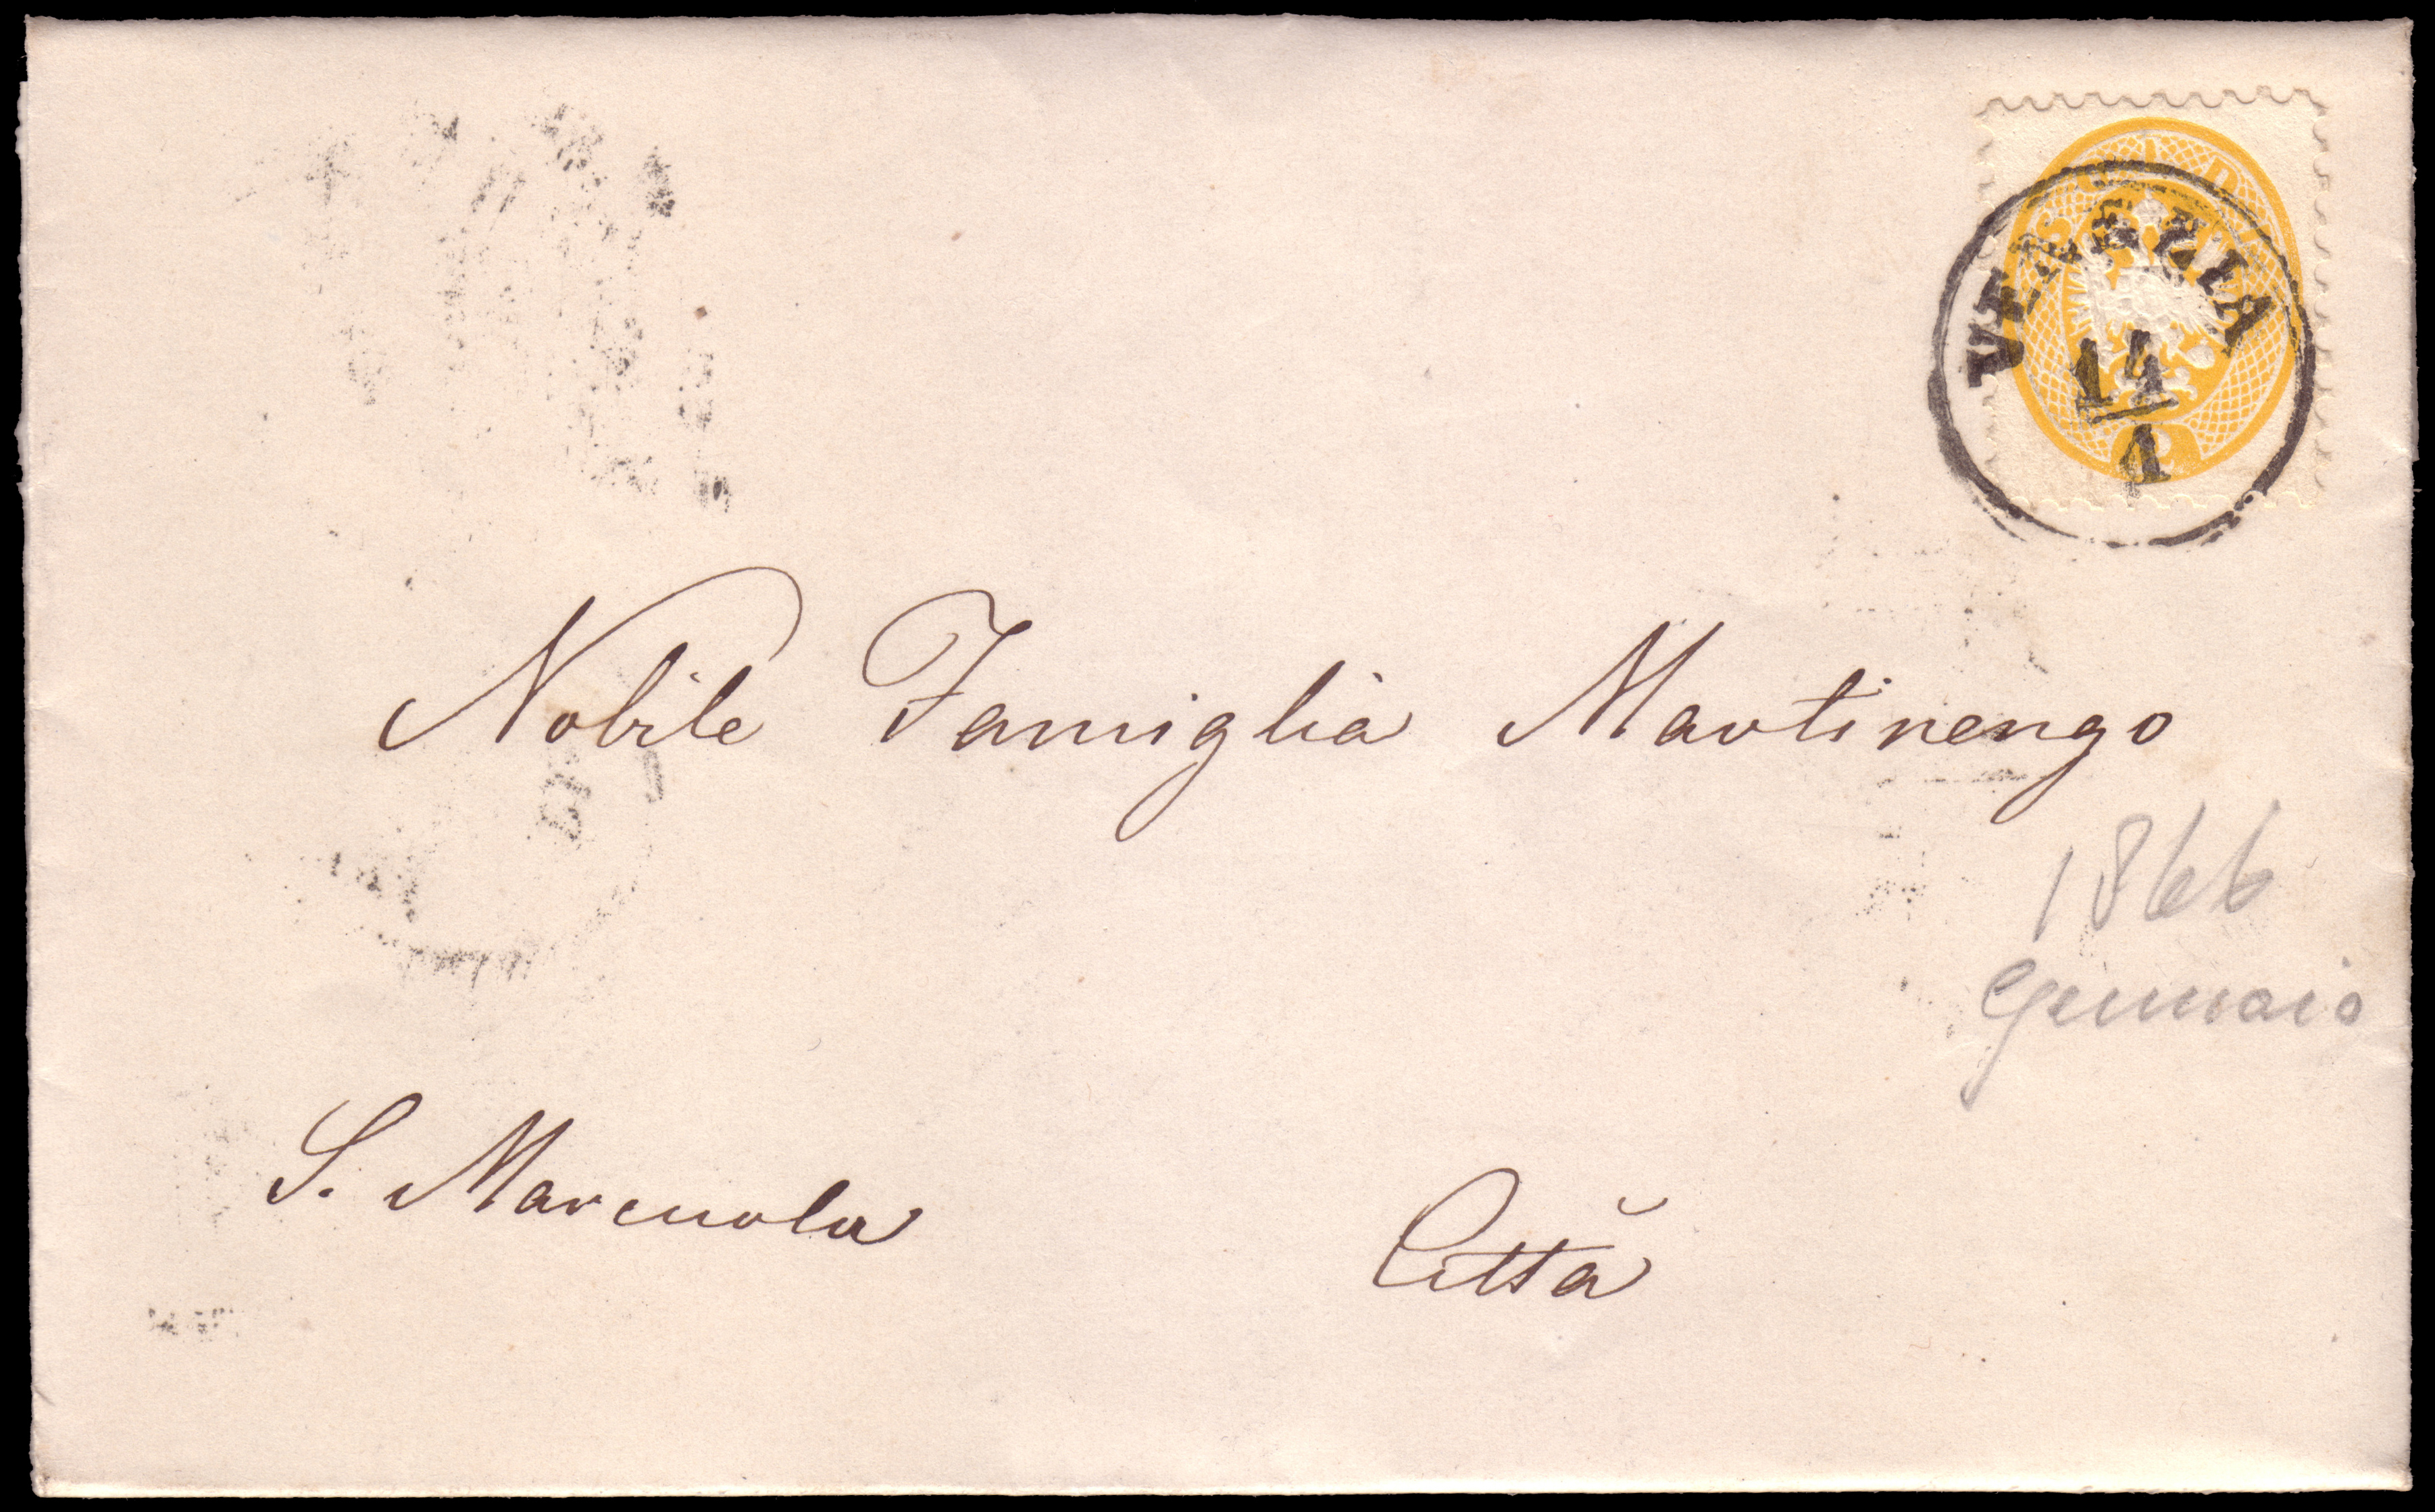 SOLDI
VENEZIA
14
1
Nobile Famiglia Martinengo
1866
Gennaio
S. Marcuola
Città